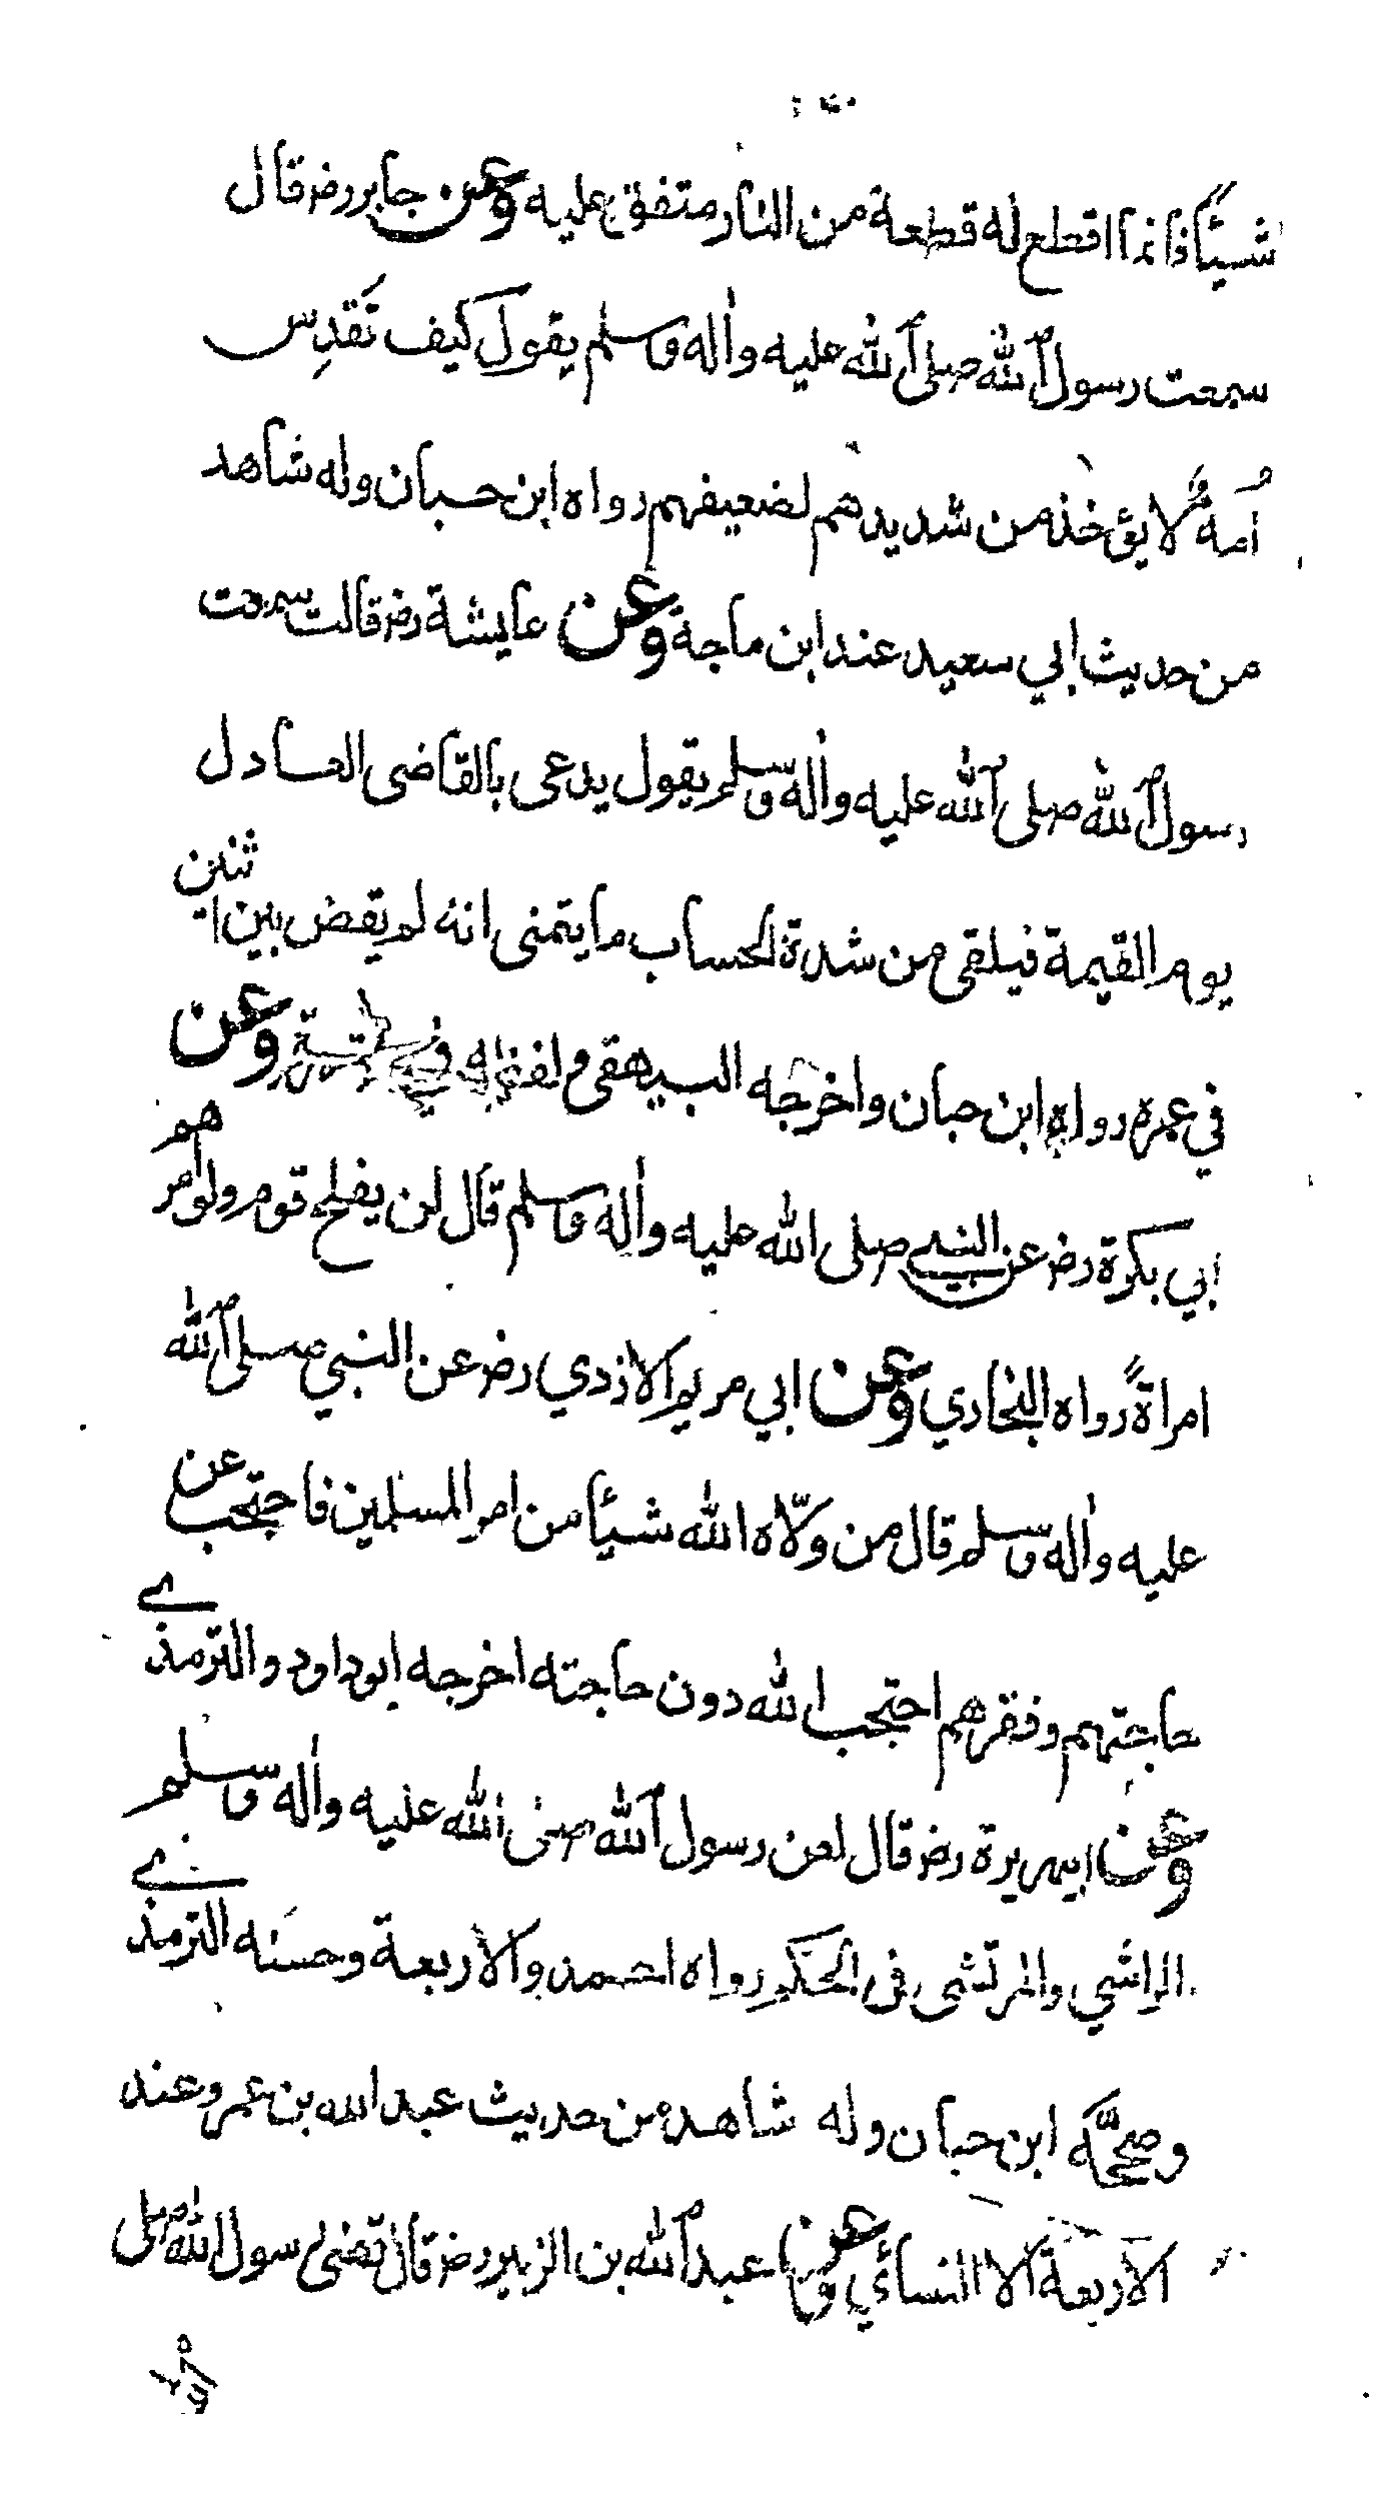 شيئًا فانما اقطع له قطعة من النار متفق عليه وعن جابر رضـ قال
سمعت رسول الله صلى الله عليه واله وسلم يقول كيف تَقدِس
اُمةٌ لا يؤخذ من شديدهم لضعيفهم رواه ابن حبان وله شاهد
من حديث ابي سعيد عند ابن ماجة وعن عايشة رضـ قالت سمعت
رسول الله صلى الله عليه واله وسلم يقول يدعى بالقاضى العادل
يوم القيمة فيلقى من شدة الحساب ما يتمنى انه لم يقض بين اثنين
في عمره رواه ابن حبان واخرجه البيهقى ولفظه في تمرة وعن
ابي بكرة رضـ عن النبي صلى الله عليه واله وسلم قال لن يفلح قوم ولوا امرهم
امراةً رواه البخاري وعن ابي مريم الازدي رضـ عن النبي صلى الله
عليه واله وسلم قال من ولّاه الله شيئا من امر المسلمين فاحتجب عن
حاجتهم وفقرهم احتجب الله دون حاجته اخرجه ابو داود والترمذي
وعن ابيهريرة رضـ قال لعن رسول الله صلى الله عليه واله وسلم
الراشي والمرتشى فى الحكم رواه احمد والاربعة وحسنه الترمذي
وصححّه ابن حبان وله شاهد من حديث عبد الله بن عمرو عند
الاربعة الا النسائي وعن عبد الله بن الزبير رضـ قال قضى رسول الله صلى